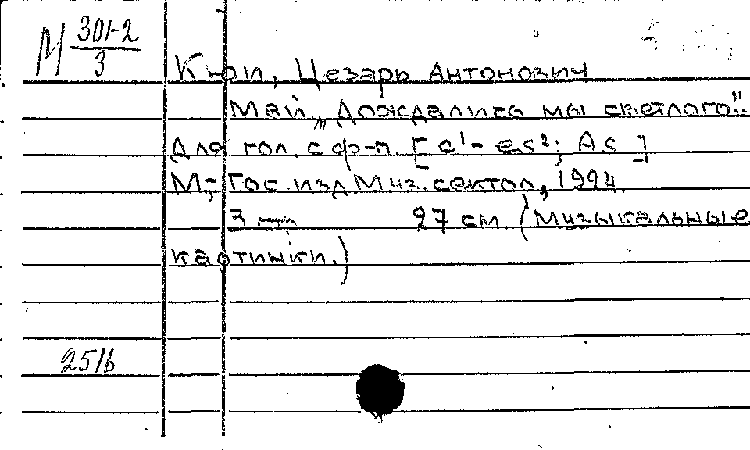 М 301-2
3
Кюи, Цезарь Антонович
Май „Дождались мы светлого".
Для гол. с ф-п. [e¹- es²; As]
М., Гос. изд. Муз. сектор, 1924
3 27 см. (Музыкальные
картинки.)
251б